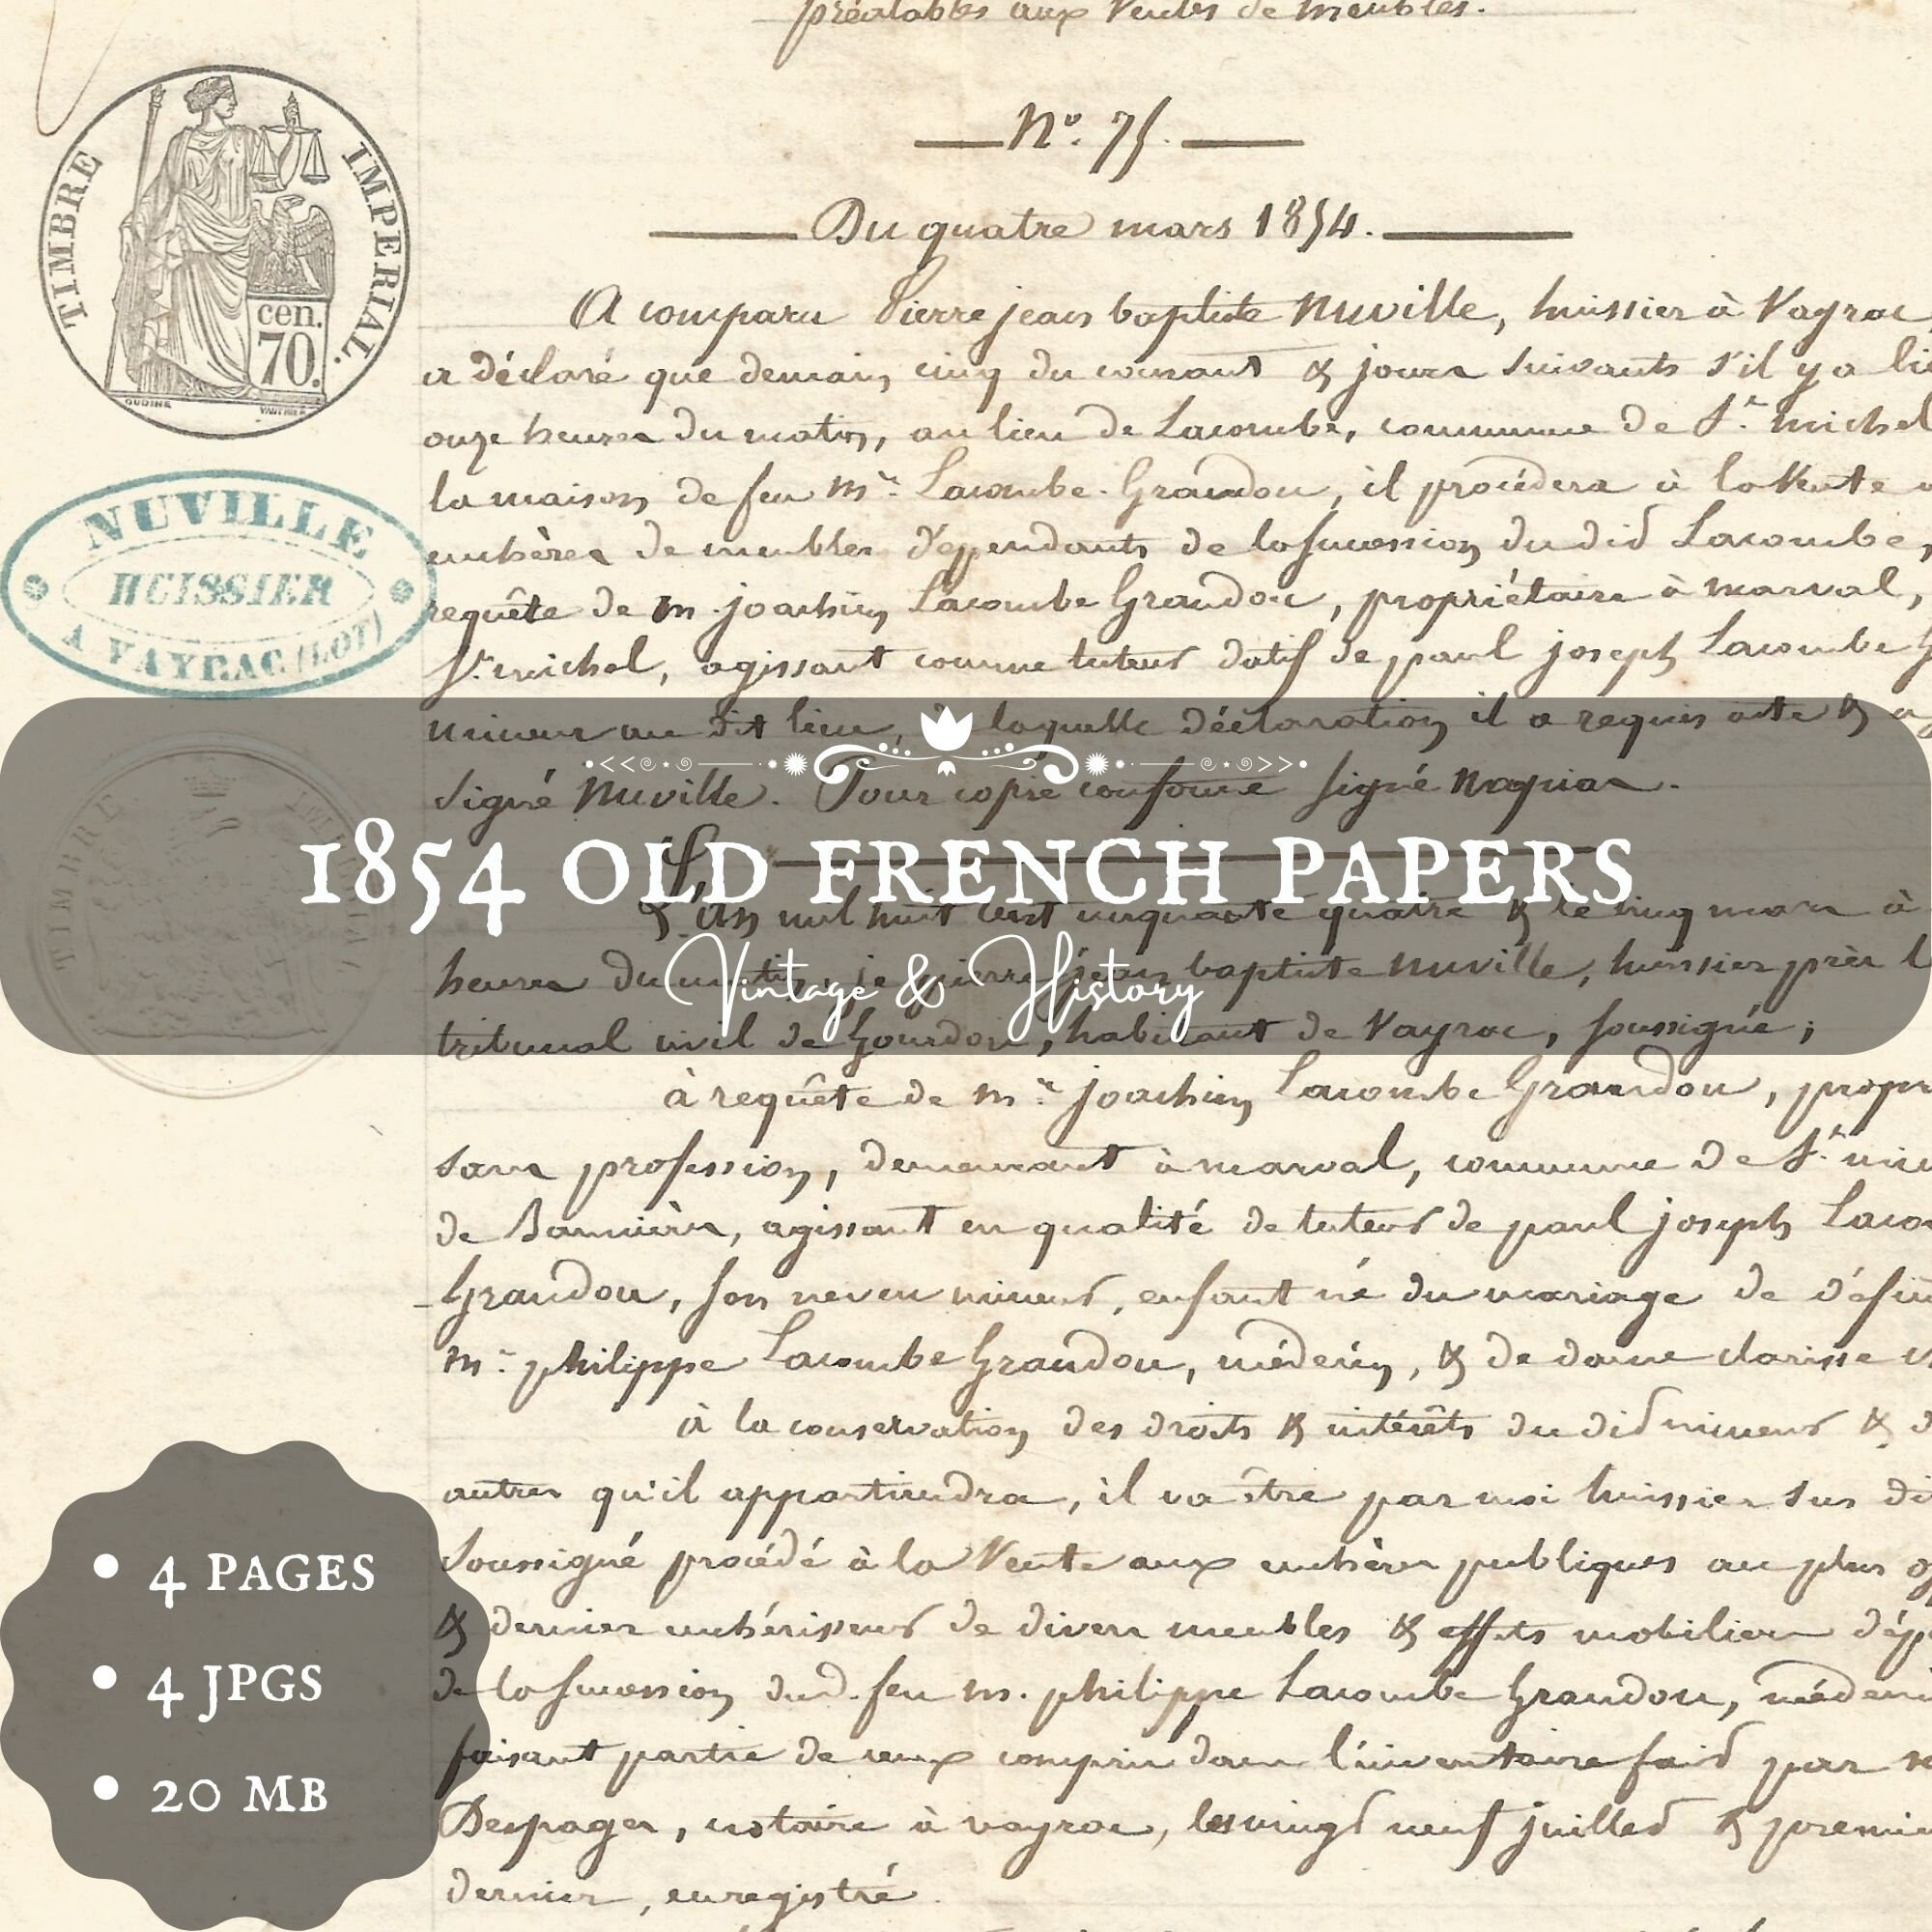 préalables aux Ventes de meubles.
N°. 75.
Du quatre mars 1854.
TIMBRE IMPERIAL.
cen.
70.
OUDINÉ
NUVILLE
HUISSIER
A VAYRAC (LOT)
A comparu Pierre jean baptiste Nuville, huissier à Vayrac
a déclaré que demain, cinq du courant & jours suivants s'il y a
onze heures du matin, au lieu de Lacombe, commune de St. michel
la maison de feu mr. Lacombe-Grandou, il procédera à la Vente
enchères de meubles dépendants de la succession du dit Lacombe,
requête de m. joachim Lacombe Grandou, propriétaire à marval,
St. michel, agissant comme tuteur datif de paul joseph Lacombe
mineur au dit lieu, de laquelle déclaration il a requis acte &
signé Nuville. Pour copie conforme signé
1854 OLD FRENCH PAPERS
L'an mil huit cent cinquante quatre & le cinq mars à
heures du matin, je pierre jean baptiste Nuville, huissier près
Vintage & History
tribunal civil de Gourdon, habitant de Vayrac, soussigné;
TIMBRE
à requête de mr. joachim Lacombe Grandou,
sans profession, demeurant à marval, commune de St.
de Bannières, agissant en qualité de tuteur de paul joseph
Grandou, son neveu mineur, enfant né du mariage de
mr. philippe Lacombe Grandou, médecin, & de dame clarisse
à la conservation des droits & intérêts du dit mineur &
autres qu'il appartiendra, il va être par moi huissier sus
soussigné procédé à la Vente aux enchères publiques au plus
& dernier enchérisseur de divers meubles & effets mobiliers
de la succession dud. feu m. philippe Lacombe Grandou,
faisant partie de ceux compris dans l'inventaire fait par
Despages, notaire à vayrac, les vingt neuf juillet &
dernier, enregistré.
• 4 PAGES
• 4 JPGS
• 20 MB